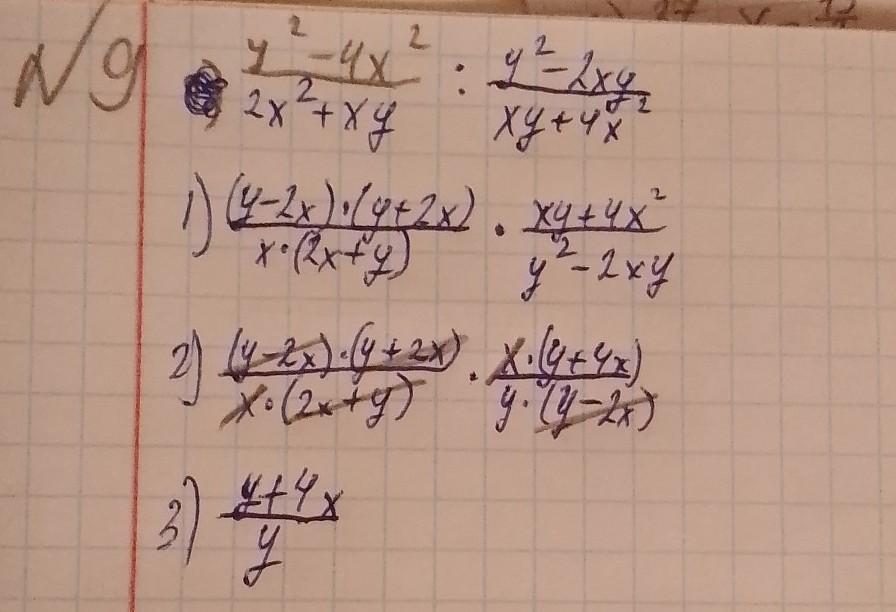 №9 (y²-4x²)/(2x²+xy) : (y²-2xy)/(xy+4x²)
1) ((y-2x)·(y+2x))/(x·(2x+y)) · (xy+4x²)/(y²-2xy)
2) ((y-2x)·(y+2x))/(x·(2x+y)) · (x·(y+4x))/(y·(y-2x))
3) (y+4x)/y